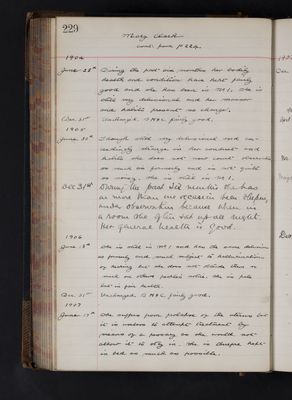 229
Mary
cont. from p. 224.
1904
June 28th During the past six months her bodily
health and condition have kept fairly
good and she has been in M1. She is
still very delusional and her manner
and habits present no change.
Dec. 31st Unchanged. B.H&C. fairly good.
1905
June 30th Though still very delusional and
strange in her conduct and
habits she does not now
so much as formerly and is not quite
so noisy. She is still in M1.
Dec 31st During the past six months she has
on more than one occasion been sleeping
under observation because when in
a room she often sat up all night.
Her general health is good.
1906
June 18th She is still in M1 and has the same delusions
as formerly and much subject to hallucinations
of hearing but she does not
much on others as she is pale
but in fair health.
Dec. 31st Unchanged. B.H&C. fairly good.
1907
June 17th She suffers from prolapse of the uterus but
it is useless to attempt treatment by
means of a pessary as she would not
allow it to stay in. She is therefore kept
in bed as much as possible.